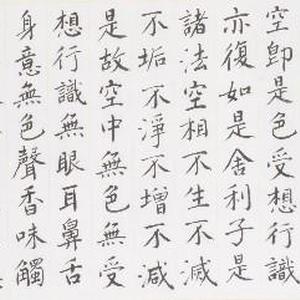 空即是色受想行識
亦復如是舍利子是
諸法空相不生不滅
不垢不淨不增不減
是故空中無色無受
想行識無眼耳鼻舌
身意無色聲香味觸